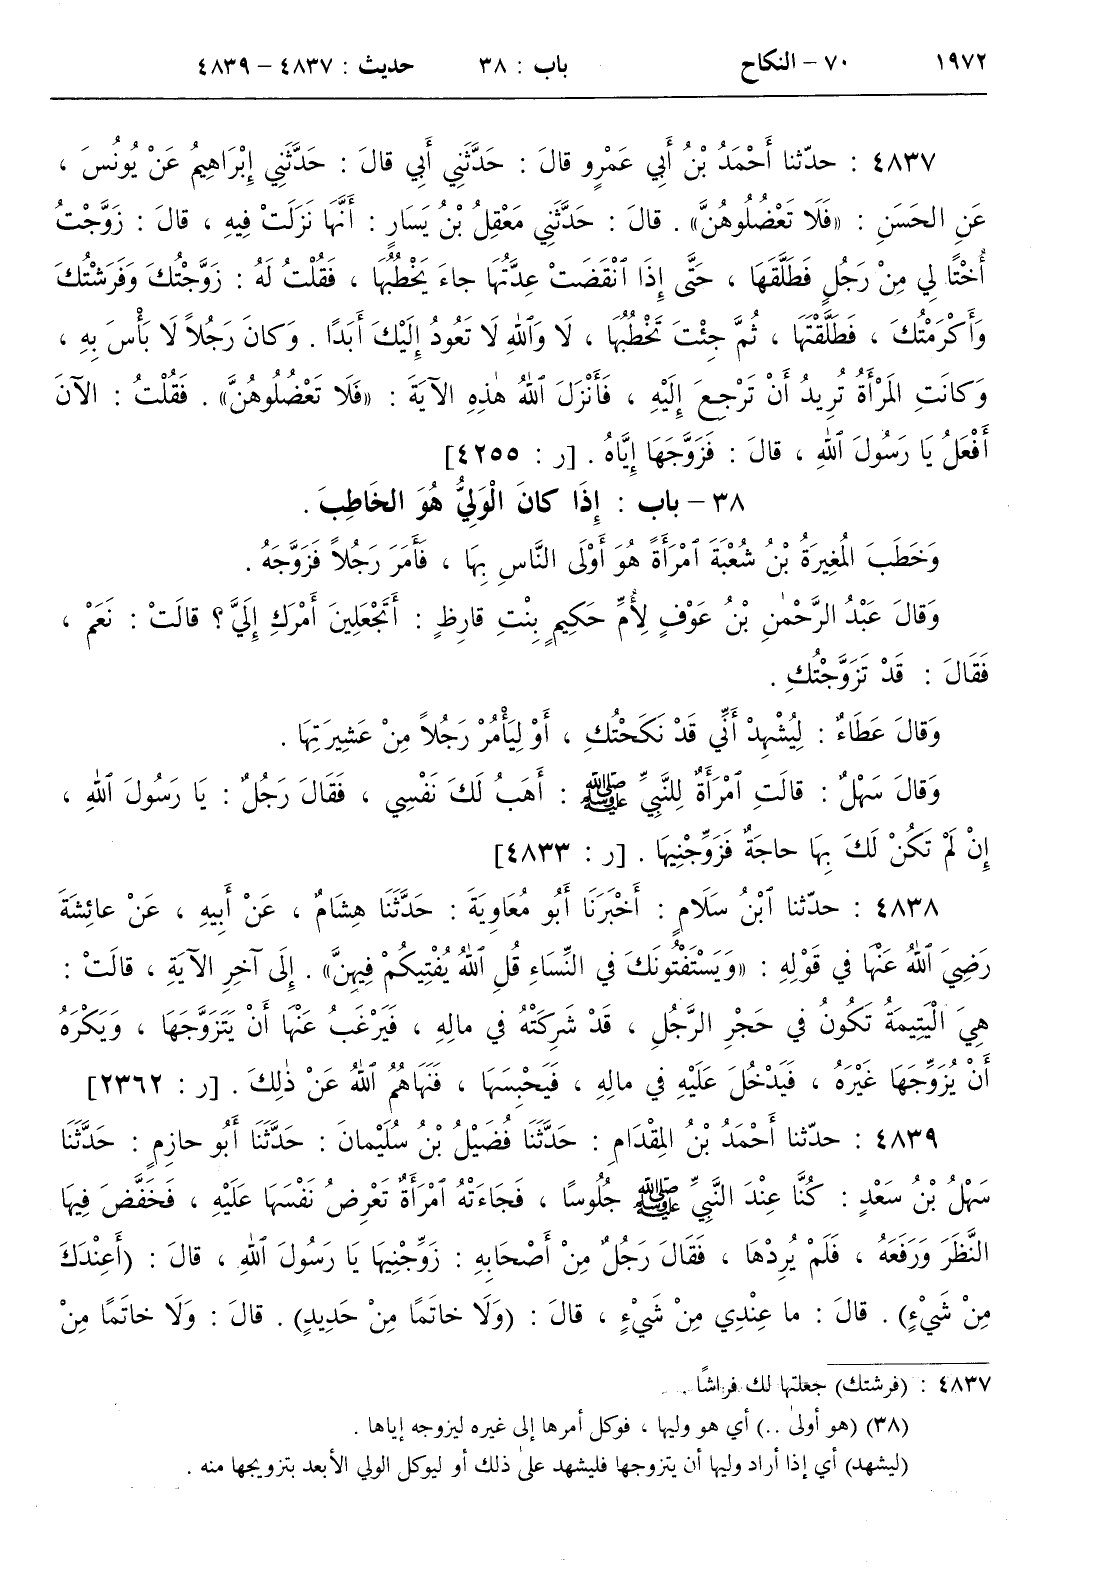 ١٩٧٢ ٧٠ – النكاح باب : ٣٨ حديث : ٤٨٣٧ – ٤٨٣٩
٤٨٣٧ : حدّثنا أَحْمَدُ بْنُ أَبِي عَمْرٍو قالَ : حَدَّثَنِي أَبِي قالَ : حَدَّثَنِي إِبْرَاهِيمُ عَنْ يُونُسَ ،
عَنِ الحَسَنِ : «فَلَا تَعْضُلُوهُنَّ» . قالَ : حَدَّثَنِي مَعْقِلُ بْنُ يَسَارٍ : أَنَّهَا نَزَلَتْ فِيهِ ، قالَ : زَوَّجْتُ
أُخْتًا لِي مِنْ رَجُلٍ فَطَلَّقَهَا ، حَتَّى إِذَا ٱنْقَضَتْ عِدَّتُهَا جاءَ يَخْطُبُهَا ، فَقُلْتُ لَهُ : زَوَّجْتُكَ وَفَرَشْتُكَ
وَأَكْرَمْتُكَ ، فَطَلَّقْتَهَا ، ثُمَّ جِئْتَ تَخْطُبُهَا ، لَا وَٱللهِ لَا تَعُودُ إِلَيْكَ أَبَدًا . وَكانَ رَجُلاً لَا بَأْسَ بِهِ ،
وَكانَتِ المَرْأَةُ تُرِيدُ أَنْ تَرْجِعَ إِلَيْهِ ، فَأَنْزَلَ ٱللهُ هٰذِهِ الآيَةَ : «فَلَا تَعْضُلُوهُنَّ» . فَقُلْتُ : الآنَ
أَفْعَلُ يَا رَسُولَ ٱللهِ ، قالَ : فَزَوَّجَهَا إِيَّاهُ . [ر : ٤٢٥٥]
٣٨ – باب : إِذَا كانَ الْوَلِيُّ هُوَ الخَاطِبَ .
وَخَطَبَ المُغِيرَةُ بْنُ شُعْبَةَ ٱمْرَأَةً هُوَ أَوْلَى النَّاسِ بِهَا ، فَأَمَرَ رَجُلاً فَزَوَّجَهُ .
وَقالَ عَبْدُ الرَّحْمٰنِ بْنُ عَوْفٍ لِأُمِّ حَكِيمٍ بِنْتِ قارِظٍ : أَتَجْعَلِينَ أَمْرَكِ إِلَيَّ؟ قالَتْ : نَعَمْ ،
فَقَالَ : قَدْ تَزَوَّجْتُكِ .
وَقالَ عَطَاءٌ : لِيُشْهِدْ أَنِّي قَدْ نَكَحْتُكِ ، أَوْ لِيَأْمُرْ رَجُلاً مِنْ عَشِيرَتِهَا .
وَقالَ سَهْلٌ : قالَتِ ٱمْرَأَةٌ لِلنَّبِيِّ ﷺ : أَهَبُ لَكَ نَفْسِي ، فَقَالَ رَجُلٌ : يَا رَسُولَ ٱللهِ ،
إِنْ لَمْ تَكُنْ لَكَ بِهَا حاجَةٌ فَزَوِّجْنِيهَا . [ر : ٤٨٣٣]
٤٨٣٨ : حدّثنا ٱبْنُ سَلَامٍ : أَخْبَرَنَا أَبُو مُعَاوِيَةَ : حَدَّثَنَا هِشَامٌ ، عَنْ أَبِيهِ ، عَنْ عائِشَةَ
رَضِيَ ٱللهُ عَنْهَا فِي قَوْلِهِ : «وَيَسْتَفْتُونَكَ فِي النِّسَاءِ قُلِ ٱللهُ يُفْتِيكُمْ فِيهِنَّ» . إِلَى آخِرِ الآيَةِ ، قالَتْ :
هِيَ الْيَتِيمَةُ تَكُونُ فِي حَجْرِ الرَّجُلِ ، قَدْ شَرِكَتْهُ فِي مالِهِ ، فَيَرْغَبُ عَنْهَا أَنْ يَتَزَوَّجَهَا ، وَيَكْرَهُ
أَنْ يُزَوِّجَهَا غَيْرَهُ ، فَيَدْخُلَ عَلَيْهِ فِي مالِهِ ، فَيَحْبِسَهَا ، فَنَهَاهُمُ ٱللهُ عَنْ ذٰلِكَ . [ر : ٢٣٦٢]
٤٨٣٩ : حدّثنا أَحْمَدُ بْنُ المِقْدَامِ : حَدَّثَنَا فُضَيْلُ بْنُ سُلَيْمانَ : حَدَّثَنَا أَبُو حازِمٍ : حَدَّثَنَا
سَهْلُ بْنُ سَعْدٍ : كُنَّا عِنْدَ النَّبِيِّ ﷺ جُلُوسًا ، فَجَاءَتْهُ ٱمْرَأَةٌ تَعْرِضُ نَفْسَهَا عَلَيْهِ ، فَخَفَّضَ فِيهَا
النَّظَرَ وَرَفَعَهُ ، فَلَمْ يُرِدْهَا ، فَقَالَ رَجُلٌ مِنْ أَصْحَابِهِ : زَوِّجْنِيهَا يَا رَسُولَ ٱللهِ ، قالَ : (أَعِنْدَكَ
مِنْ شَيْءٍ) . قالَ : ما عِنْدِي مِنْ شَيْءٍ ، قالَ : (وَلَا خاتَمًا مِنْ حَدِيدٍ) . قالَ : وَلَا خاتَمًا مِنْ
٤٨٣٧ : (فرشتك) جعلتها لك فراشًا .
(٣٨) (هو أولى ..) أي هو وليها ، فوكل أمرها إلى غيره ليزوجه إياها .
(ليشهد) أي إذا أراد وليها أن يتزوجها فليشهد على ذلك أو ليوكل الولي الأبعد بتزويجها منه .